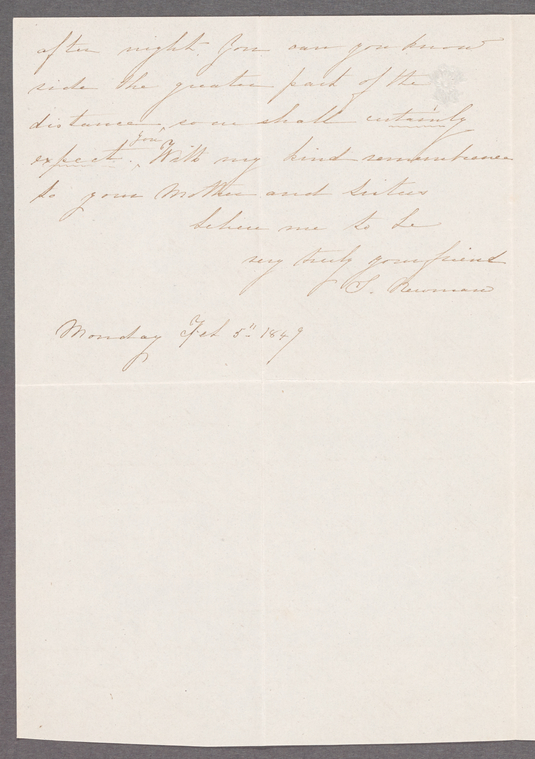 after night. You can you know
side the greater part of the
distance, so we shall certainly
expect you. With my kind remembrance
to your Mother and sisters
believe me to be
very truly your friend
S. Newman
Monday Feb 5" 1849